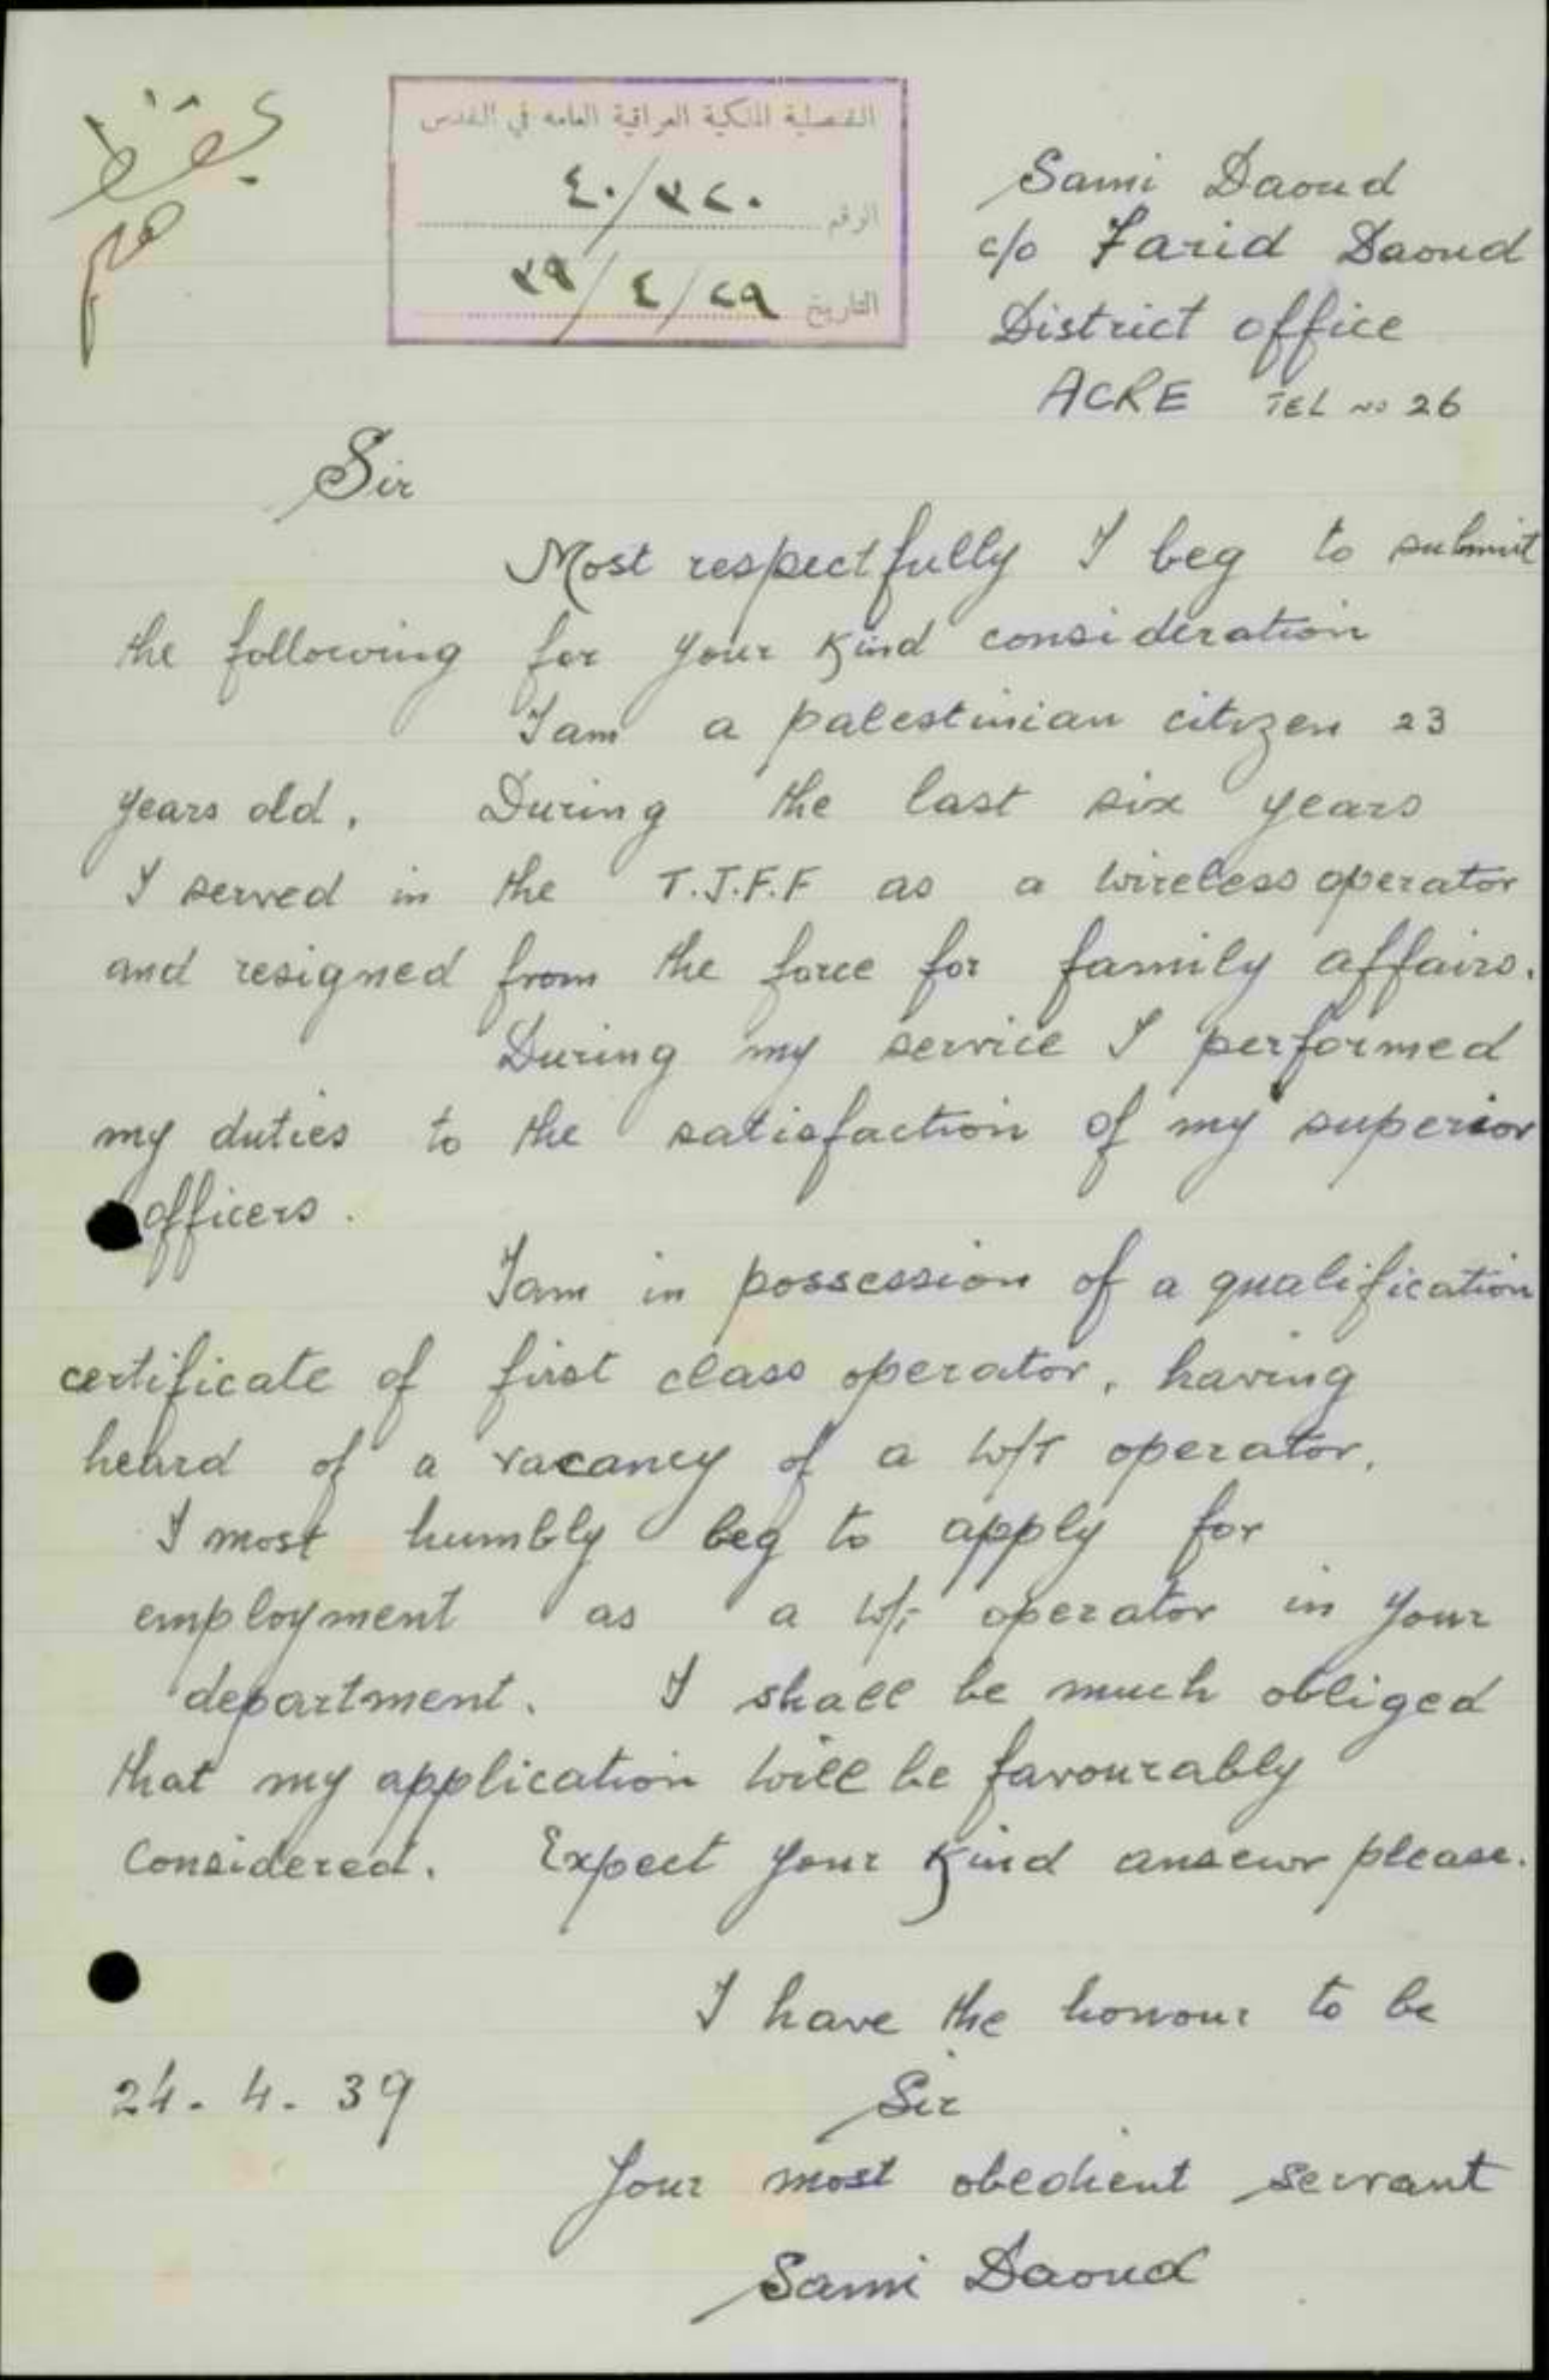 يحفظ
القنصلية الملكية العراقية العامه في القدس
الرقم ٤٠/٣٢٠
التاريخ ٢٩/٤/٣٩
Sami Daoud
c/o Farid Daoud
District office
ACRE TEL No 26
Sir
Most respectfully I beg to submit
the following for your Kind consideration
I am a palestinian citizen 23
years old. During the last six years
I served in the T.J.F.F as a wireless operator
and resigned from the force for family affairs.
During my service I performed
my duties to the satisfaction of my superior
officers.
I am in possession of a qualification
certificate of first class operator, having
heard of a vacancy of a W/T operator.
I most humbly beg to apply for
employment as a W/T operator in your
department. I shall be much obliged
that my application will be favourably
Considered. Expect your Kind ansewr please.
I have the honour to be
24. 4. 39
Sir
Your most obedient servant
Sami Daoud